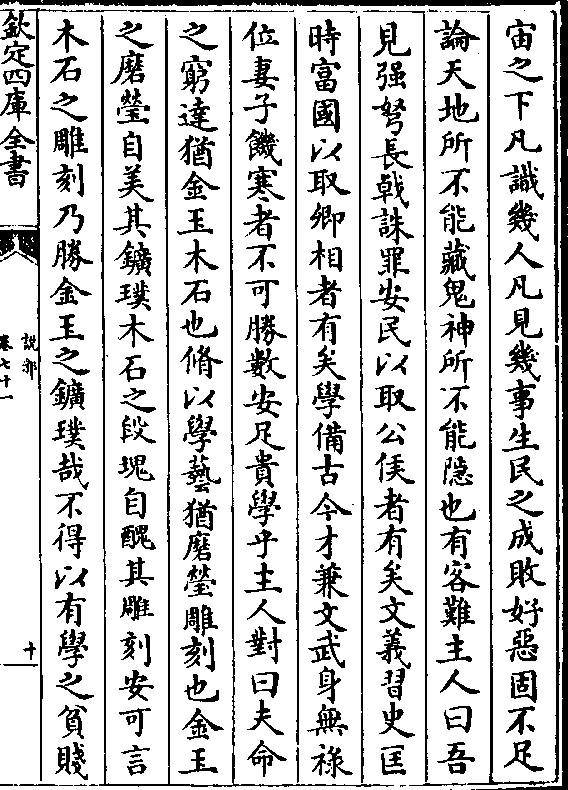 宙之下凡識幾人凡見幾事生民之成敗好惡固不足
論天地所不能藏鬼神所不能隱也有客難主人曰吾
見强弩長戟誅罪安民以取公侯者有矣文義習史匡
時富國以取卿相者有矣學備古今才兼文武身無祿
位妻子饑寒者不可勝數安足貴學乎主人對曰夫命
之窮達猶金玉木石也脩以學藝猶磨瑩雕刻也金玉
之磨瑩自美其鑛璞木石之段塊自醜其雕刻安可言
木石之雕刻乃勝金玉之鑛璞哉不得以有學之貧賤
欽定四庫全書
說郛
卷七十一
十